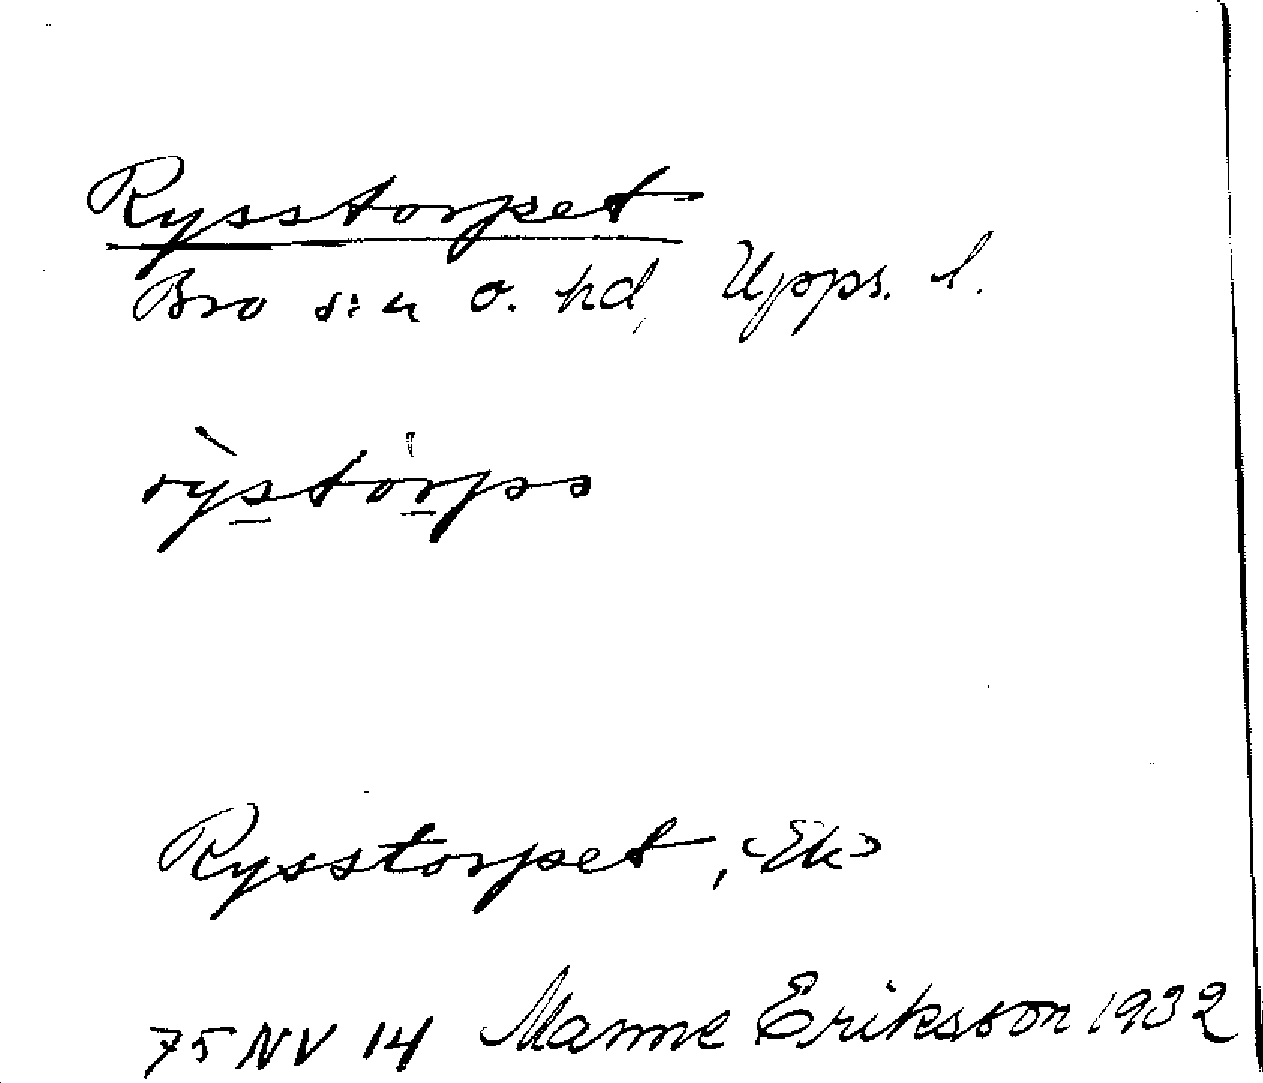 Rysstorpet
Bro s:n o. hd, Upps. l.
rỳstòrpə
Rysstorpet, <Ek>
75 NV 14 Manne Eriksson 1932